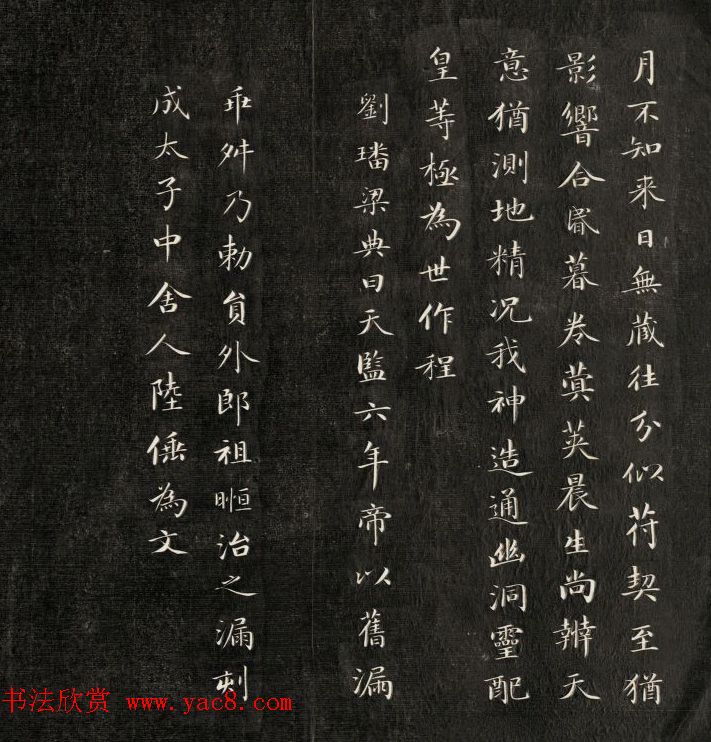 月不知来日無藏往分似符契至猶
影響合昏暮卷蓂英晨生尚辨天
意猶測地精况我神造通幽洞靈配
皇等極為世作程
劉璠梁典曰天監六年帝以舊漏
乖舛乃勅員外郎祖暅治之漏刺
成太子中舍人陸倕為文
书法欣赏 www.yac8.com